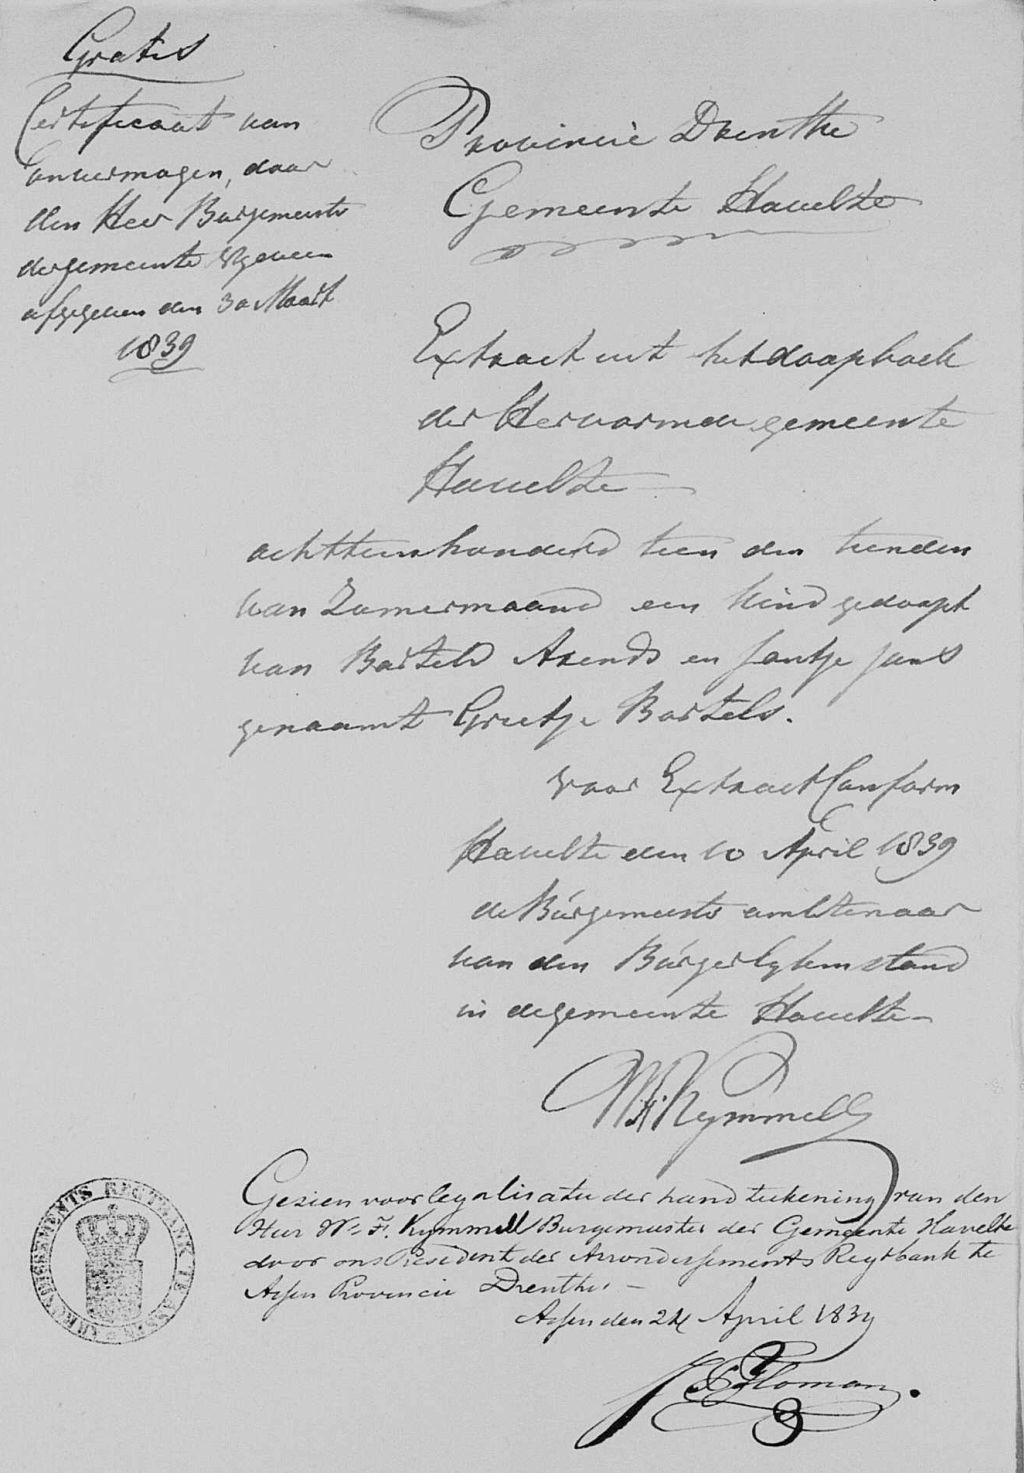 Gratis
Certificaat van
onvermogen, door
den Heer Burgemeester
der gemeente
afgegeven den 30 Maart
1839
Provincie Drenthe
Gemeente Havelte
Extract uit het doopboek
der Hervormde gemeente
Havelte
achttienhonderd tien den tienden
van Zomermaand een kind gedoopt
van Barteld Arends en Jantje Jans
genaamt Grietje Bartels.
Voor Extract Conform
Havelte den 10 April 1839
de Burgemeester ambtenaar
van den Burgerlyken stand
in de gemeente Havelte
Kymmell
Gezien voor legalisatie der handteekening van den
Heer W. F. Kymmell Burgemeester der Gemeente Havelte
door ons President der Arrondissements Regtbank te
Assen Provincie Drenthe.
Assen den 24 April 1839
Homan.
ARRONDISSEMENTS REGTBANK TE ASSEN